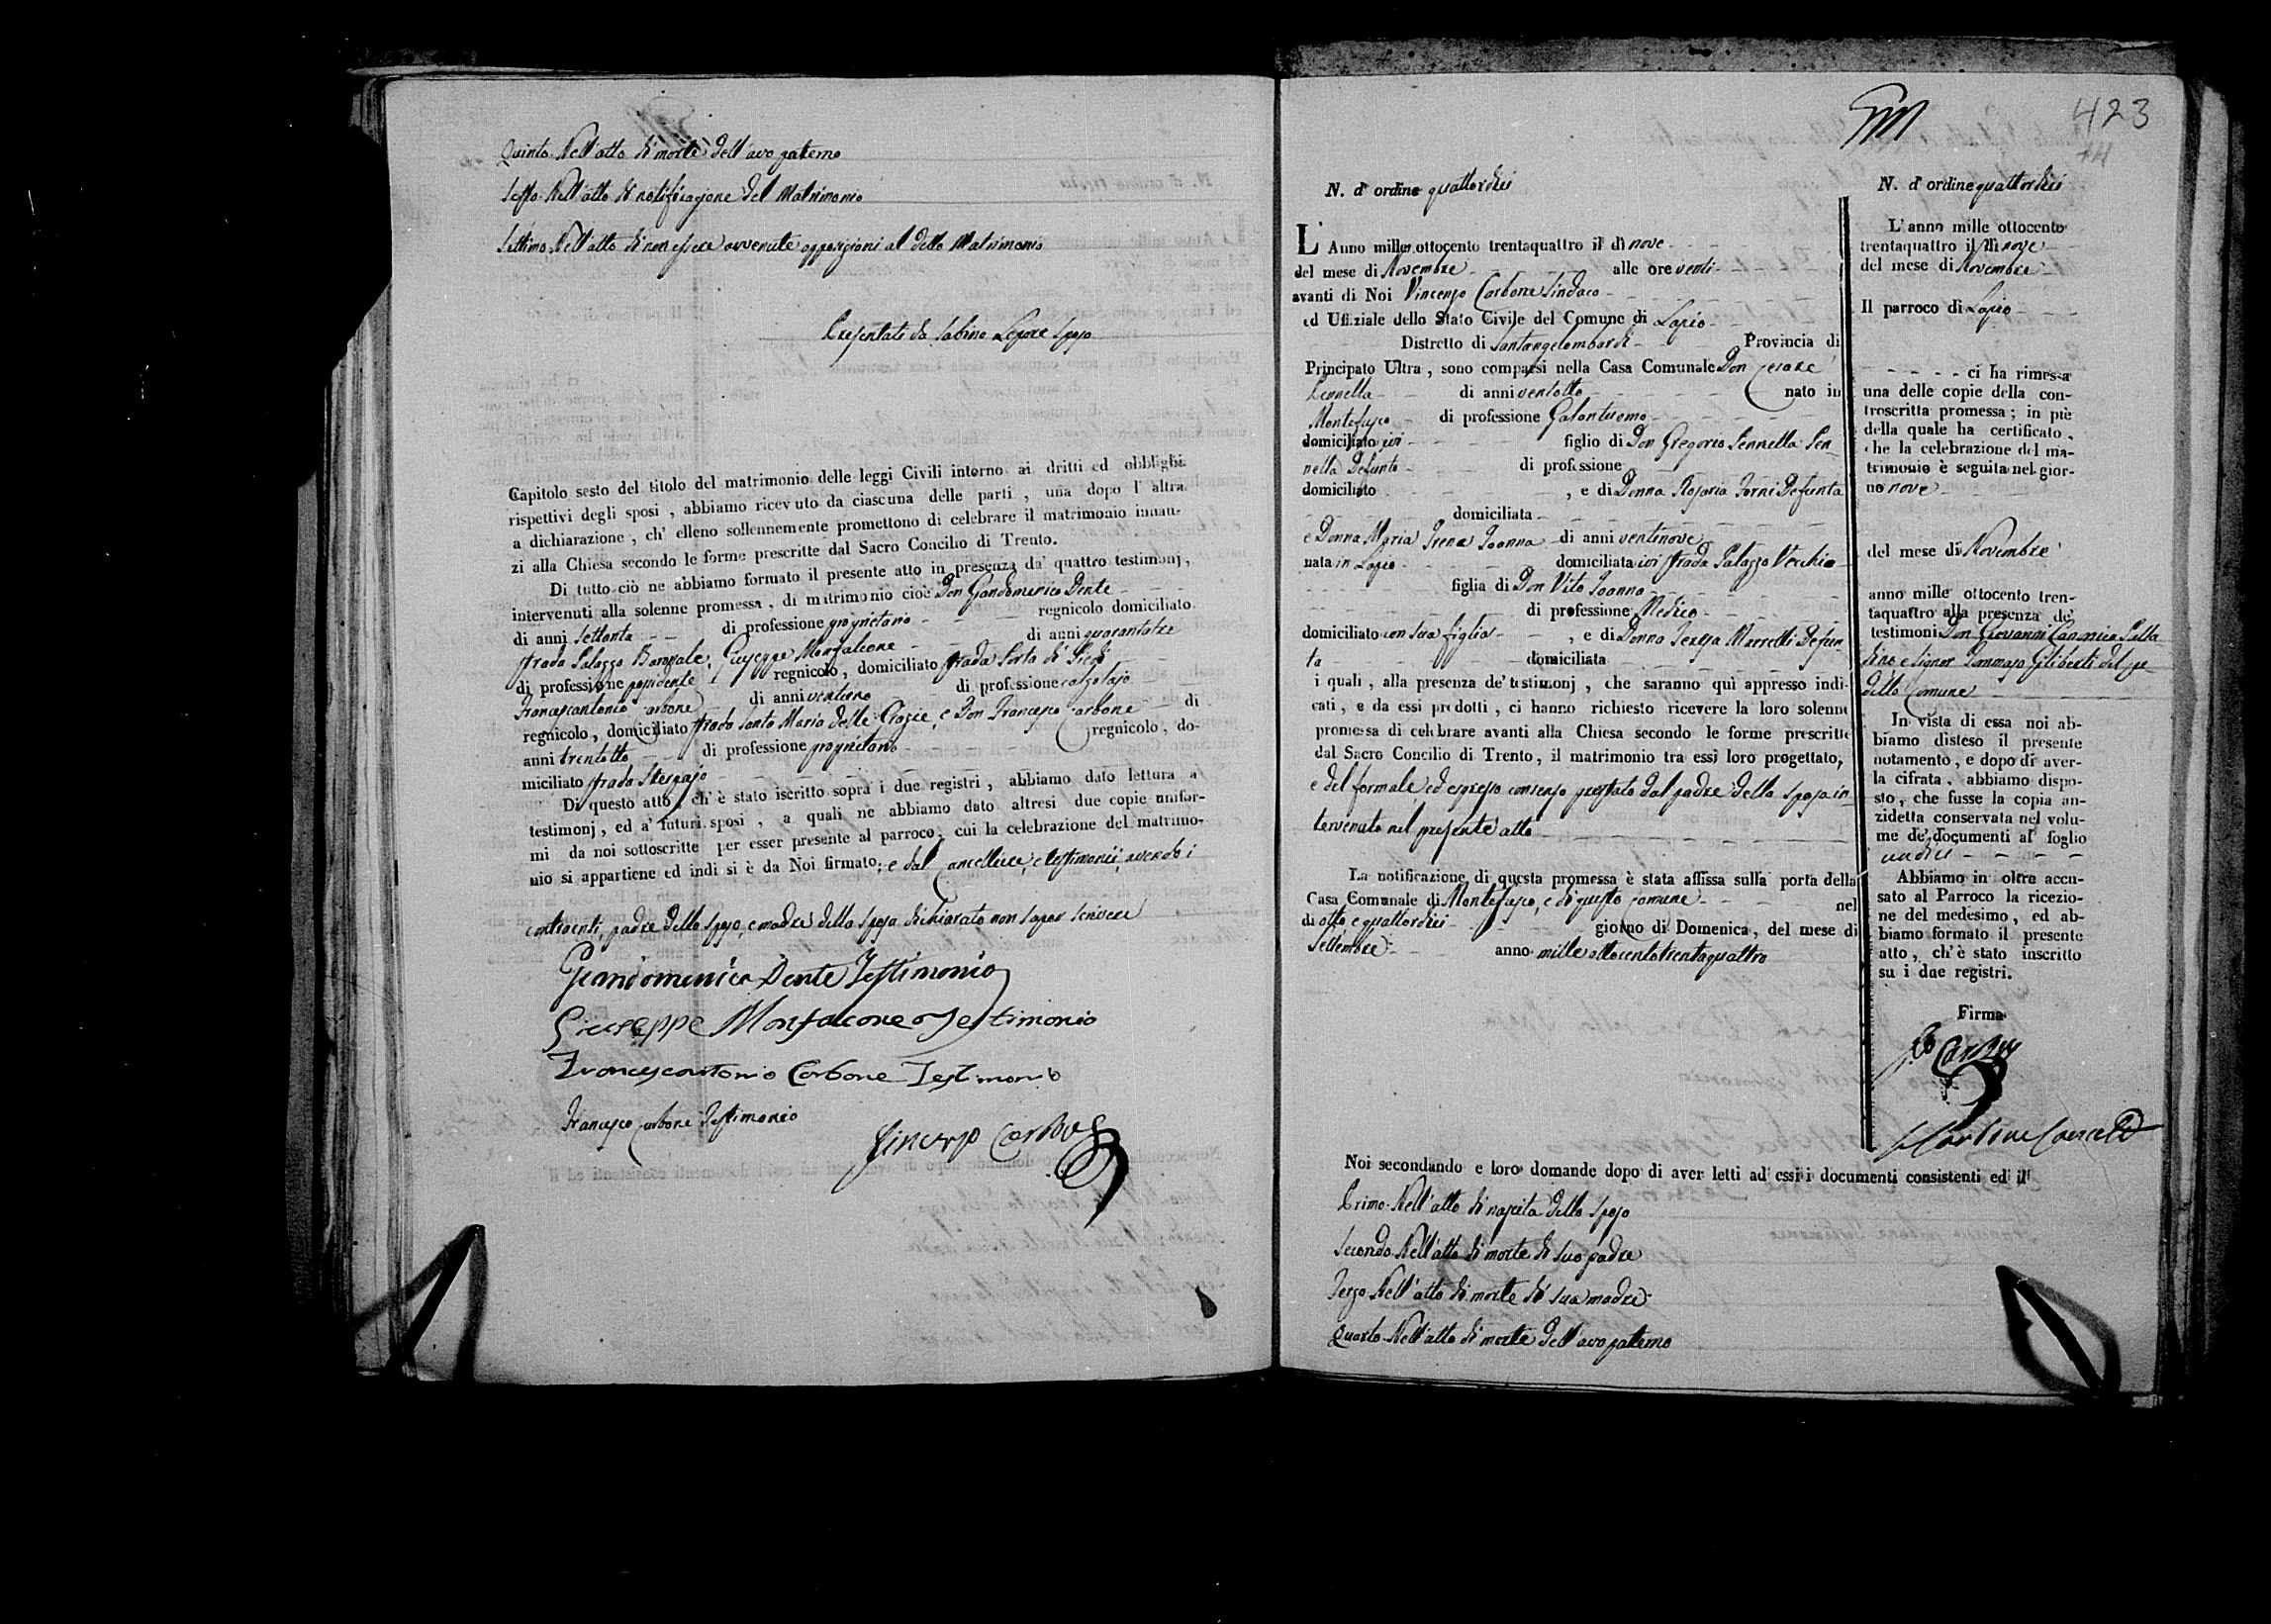 Quinto Nell'atto di morte dell'avo paterno
Sesto Nell'atto di notificazione del Matrimonio
Settimo Nell'atto di non essere avvenute opposizioni al detto Matrimonio
Presentati da Sabino Lepore sposo
Capitolo sesto del titolo del matrimonio delle leggi Civili intorno ai dritti ed obblighi
rispettivi degli sposi, abbiamo ricevuto da ciascuna delle parti, una dopo l'altra
a dichiarazione, ch'elleno sollennemente promettono di celebrare il matrimonio innan-
zi alla Chiesa secondo le forme prescritte dal Sacro Concilio di Trento.
Di tutto ciò ne abbiamo formato il presente atto in presenza da' quattro testimonj,
intervenuti alla solenne promessa, di matrimonio cioè Don Giandomenico Dente
di anni settanta di professione proprietario regnicolo domiciliato
strada Palazzo Baronale, Giuseppe Monfalcone di anni quarantatre
di professione possidente regnicolo, domiciliato strada Porta di
Francescantonio Carbone di anni ventuno di professione calzolajo
regnicolo, domiciliato strada Santa Maria delle Grazie, e Don Francesco Carbone di
anni trentotto di professione proprietario regnicolo, do-
miciliato strada
Di questo atto, ch'è stato iscritto sopra i due registri, abbiamo dato lettura a
testimonj, ed a' futuri sposi, a quali ne abbiamo dato altresì due copie unifor-
mi da noi sottoscritte per esser presente al parroco, cui la celebrazione del matrimo-
nio si appartiene ed indi si è da Noi firmato; e dal Cancelliere, e testimonii, avendo i
contraenti, padre dello sposo, e madre della sposa dichiarato non saper scrivere
Giandomenico Dente Testimonio
Giuseppe Monfalcone Testimonio
Francescantonio Carbone Testimonio
Francesco Carbone Testimonio
Vincenzo Carbone
423
N. d'ordine quattordici
L'Anno mille ottocento trentaquattro il dì nove
del mese di Novembre alle ore venti
avanti di Noi Vincenzo Carbone Sindaco
ed Uffiziale dello Stato Civile del Comune di Lapio
Distretto di Santangelombardi Provincia di
Principato Ultra, sono comparsi nella Casa Comunale Don Cesare
Pennella di anni ventotto nato in
Montefusco di professione Galantuomo
domiciliato ivi figlio di Don Gregorio Pennella Pen-
nella Defunto di professione
domiciliato, e di Donna Rosaria Defunta
domiciliata
e Donna Maria Irena Joanna di anni ventinove
nata in Lapio domiciliata ivi strada Palazzo Vecchio
figlia di Don Vito Joanna
di professione Medico
domiciliato con sua figlia, e di Donna Teresa Defun-
ta domiciliata
i quali, alla presenza de' testimonj, che saranno quì appresso indi-
cati, e da essi prodotti, ci hanno richiesto ricevere la loro solenne
promessa di celebrare avanti alla Chiesa secondo le forme prescritte
dal Sacro Concilio di Trento, il matrimonio tra essi loro progettato,
e del formale, ed espresso consenso prestato dal padre della sposa in-
tervenuto nel presente atto
La notificazione di questa promessa è stata affissa sulla porta della
Casa Comunale di Montefusco, e di questo Comune nel
dì otto, e quattordici giorno di Domenica, del mese di
Settembre anno mille ottocento trentaquattro
N. d'ordine quattordici
L'anno mille ottocento
trentaquattro il dì nove
del mese di Novembre
Il parroco di Lapio
ci ha rimessa
una delle copie della con-
troscritta promessa; in piè
della quale ha certificato,
che la celebrazione del ma-
trimonio è seguita nel gior-
no nove
del mese di Novembre
anno mille ottocento tren-
taquattro alla presenza de'
testimoni Don Giovanni Canonico Palla-
dino e Signor Tommaso Giliberti del pre-
detto Comune
In vista di essa noi ab-
biamo disteso il presente
notamento, e dopo di aver-
la cifrata, abbiamo dispo-
sto, che fusse la copia an-
zidetta conservata nel volu-
me de' documenti al foglio
undici
Abbiamo in oltre accu-
sato al Parroco la ricezio-
ne del medesimo, ed ab-
biamo formato il presente
atto, ch'è stato inscritto
su i due registri.
Firma
Noi secondando e loro domande dopo di aver letti ad essi i documenti consistenti ed il
Primo Nell'atto di nascita dello sposo
Secondo Nell'atto di morte di suo padre
Terzo Nell'atto di morte di sua madre
Quarto Nell'atto di morte dell'avo paterno